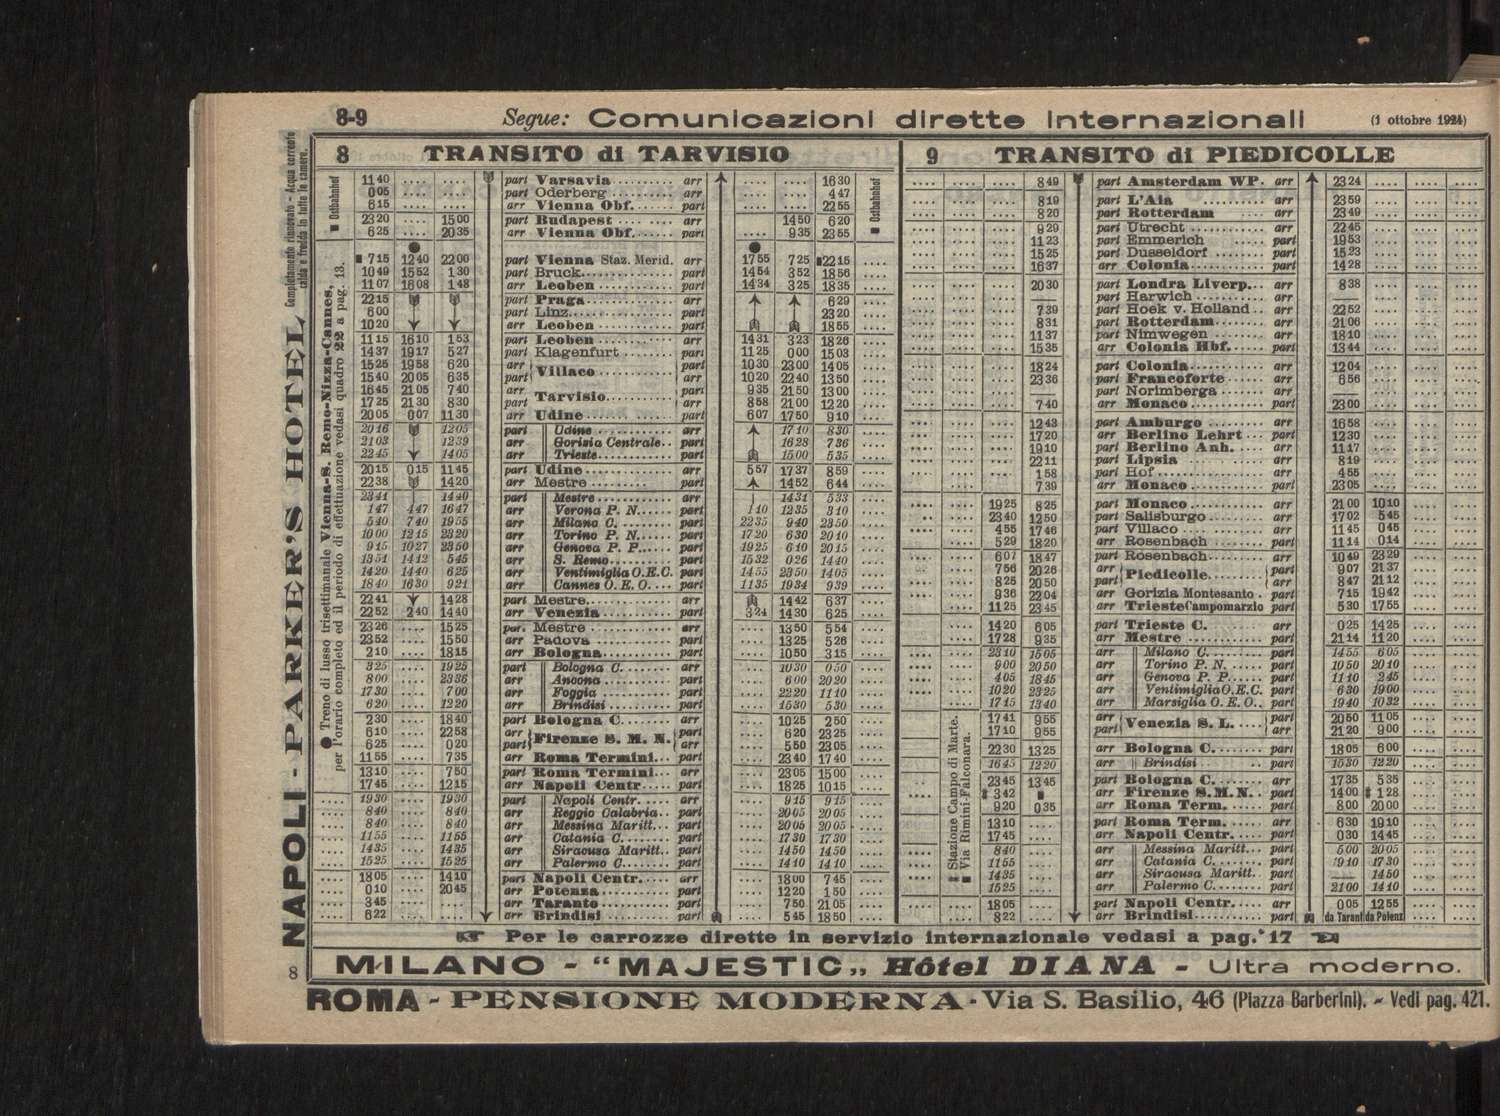 8-9 Segue: Comunicazioni dirette internazionali (1 ottobre 1924)
8 TRANSITO di TARVISIO
11 40 .... .... part Varsavia arr .... .... 16 30
0 05 .... .... part Oderberg arr .... .... 4 47
6 15 .... .... arr Vienna Obf. part .... .... 22 55
23 20 .... 15 00 part Budapest arr .... 14 50 6 20
6 25 .... 20 35 arr Vienna Obf. part .... 9 35 23 55
■ 7 15 12 40 22 00 part Vienna Staz. Merid. arr 17 55 7 25 ■ 22 15 ....
10 49 15 52 1 30 part Bruck part 14 54 3 52 18 56 ....
11 07 16 08 1 48 arr Leoben part 14 34 3 25 18 35 ....
22 15 part Praga arr 6 29 ....
6 00 part Linz part 23 20 ....
10 20 arr Leoben part 18 55 ....
11 15 16 10 1 53 part Leoben arr 14 31 3 23 18 26 ....
14 37 19 17 5 27 part Klagenfurt part 11 25 0 00 15 03 ....
15 25 19 58 6 20 arr Villaco part 10 30 23 00 14 05 ....
15 40 20 05 6 35 part arr 10 20 22 40 13 50 ....
16 45 21 05 7 40 arr Tarvisio part 9 35 21 50 13 00 ....
17 25 21 30 8 30 part arr 8 58 21 00 12 20 ....
20 05 0 07 11 30 arr Udine part 6 07 17 50 9 10 ....
20 16 12 05 part Udine arr 17 10 8 30 ....
21 03 12 39 arr Gorizia Centrale part 16 28 7 36 ....
22 45 14 05 arr Trieste part 15 00 5 35 ....
20 15 0 15 11 45 part Udine arr 5 57 17 37 8 59 ....
22 38 14 20 arr Mestre part 14 52 6 44 ....
23 41 14 40 part Mestre arr 14 31 5 33 ....
1 47 4 47 16 47 arr Verona P. N. part 1 10 12 35 3 10 ....
5 40 7 40 19 55 arr Milano C. part 22 35 9 40 23 50 ....
10 00 12 15 23 20 arr Torino P. N. part 17 20 6 30 20 10 ....
9 15 10 27 23 50 arr Genova P. P. part 19 25 6 10 20 15 ....
13 51 14 12 5 45 arr S. Remo part 15 32 0 26 14 40 ....
14 20 14 40 6 25 arr Ventimiglia O.E.C. part 14 55 23 50 14 05 ....
18 40 16 30 9 21 arr Cannes O. E. O. part 11 35 19 34 9 39 ....
22 41 14 28 part Mestre arr 14 42 6 37 ....
22 52 2 40 14 40 arr Venezia part 3 24 14 30 6 25 ....
23 26 .... 15 25 par. Mestre arr .... 13 50 5 54 ....
23 52 .... 15 50 arr Padova part .... 13 25 5 26 ....
2 10 .... 18 15 arr Bologna part .... 10 50 3 15 ....
3 25 .... 19 25 part Bologna C. arr .... 10 30 0 50 ....
8 00 .... 23 36 arr Ancona part .... 6 00 20 20 ....
17 30 .... 7 00 arr Foggia part .... 22 20 11 10 ....
6 20 .... 12 20 arr Brindisi part .... 15 30 5 30 ....
2 30 .... 18 40 part Bologna C arr .... 10 25 2 50 ....
6 10 .... 22 58 arr Firenze S. M. N. part .... 6 20 23 25 ....
6 25 .... 0 20 part arr .... 5 50 23 05 ....
11 55 .... 7 35 arr Roma Termini part .... 23 40 17 40 ....
13 10 .... 7 50 part Roma Termini arr .... 23 05 15 00 ....
17 45 .... 12 15 arr Napoli Centr part .... 18 25 10 15 ....
.... 19 30 .... 19 30 part Napoli Centr. arr .... 9 15 9 15 ....
.... 8 40 .... 8 40 arr Reggio Calabria part .... 20 05 20 05 ....
.... 8 40 .... 8 40 arr Messina Maritt. part .... 20 05 20 05 ....
.... 11 55 .... 11 55 arr Catania C. part .... 17 30 17 30 ....
.... 14 35 .... 14 35 arr Siracusa Maritt. part .... 14 50 14 50 ....
.... 15 25 .... 15 25 arr Palermo C. part .... 14 10 14 10 ....
.... 18 05 .... 14 10 part Napoli Centr. arr .... 18 00 7 45 ....
.... 0 10 .... 20 45 arr Potenza part .... 12 20 1 50 ....
.... 3 45 .... .... arr Taranto part .... 7 50 21 05 ....
.... 6 22 .... .... arr Brindisi part .... 5 45 18 50 ....
■ Ostbahnhof
■ Ostbahnhof
● Treno di lusso trisettimanale Vienna-S. Remo-Nizza-Cannes,
per l'orario completo ed il periodo di effettuazione vedasi quadro 22 a pag. 13.
9 TRANSITO di PIEDICOLLE
.... .... 8 49 part Amsterdam WP. arr 23 24 .... .... ....
.... .... 8 19 part L'Aia arr 23 59 .... .... ....
.... .... 8 20 part Rotterdam arr 23 49 .... .... ....
.... .... 9 29 part Utrecht arr 22 45 .... .... ....
.... .... 11 23 part Emmerich part 19 53 .... .... ....
.... .... 15 25 part Dusseldorf part 15 23 .... .... ....
.... .... 16 37 arr Colonia part 14 28 .... .... ....
.... .... 20 30 part Londra Liverp. arr 8 38 .... .... ....
.... .... — part Harwich arr — .... .... ....
.... .... 7 39 part Hoek v. Holland arr 22 52 .... .... ....
.... .... 8 31 part Rotterdam arr 21 06 .... .... ....
.... .... 11 37 part Nimwegen arr 18 10 .... .... ....
.... .... 15 35 arr Colonia Hbf. part 13 44 .... .... ....
.... .... 18 24 part Colonia arr 12 04 .... .... ....
.... .... 23 36 part Francoforte arr 6 56 .... .... ....
part Norimberga arr
.... .... 7 40 arr Monaco part 23 00 .... .... ....
.... .... 12 43 part Amburgo arr 16 58 .... .... ....
.... .... 17 20 arr Berlino Lehrt part 12 30 .... .... ....
.... .... 19 10 part Berlino Anh. arr 11 17 .... .... ....
.... .... 22 11 part Lipsia arr 8 19 .... .... ....
.... .... 1 58 part Hof arr 4 55 .... .... ....
.... .... 7 39 arr Monaco part 23 05 .... .... ....
.... 19 25 8 25 part Monaco arr 21 00 10 10 .... ....
.... 23 40 12 50 part Salisburgo part 17 02 5 45 .... ....
.... 4 55 17 46 part Villaco arr 11 45 0 45 .... ....
.... 5 29 18 20 arr Rosenbach part 11 14 0 14 .... ....
.... 6 07 18 47 part Rosenbach arr 10 49 23 29 .... ....
.... 7 56 20 26 arr Piedicolle part 9 07 21 37 .... ....
.... 8 25 20 50 part arr 8 47 21 12 .... ....
.... 9 36 22 04 arr Gorizia Montesanto part 7 15 19 42 .... ....
.... 11 25 23 45 arr Trieste Campomarzio part 5 30 17 55 .... ....
14 20 6 05 part Trieste C. arr 0 25 14 25 .... ....
17 28 9 35 arr Mestre part 21 14 11 20 .... ....
23 10 15 05 arr Milano C. part 14 55 6 05 .... ....
9 00 20 50 arr Torino P. N. part 10 50 20 10 .... ....
4 05 18 45 arr Genova P. P. part 11 10 2 45 .... ....
10 20 23 25 arr Ventimiglia O.E.C. part 6 30 19 00 .... ....
17 15 13 40 arr Marsiglia O. E. O. part 19 40 10 32 .... ....
17 41 9 55 arr Venezia S. L. part 20 50 11 05 .... ....
17 10 9 55 part arr 21 20 9 00 .... ....
22 30 13 25 arr Bologna C. part 18 05 6 00 .... ....
16 45 12 20 arr Brindisi part 15 30 12 20 .... ....
23 45 13 45 part Bologna C. arr 17 35 5 35 .... ....
‡ 3 42 ■ arr Firenze S.M.N. part 14 00 ‡ 1 28 .... ....
9 20 0 35 arr Roma Term. part 8 00 20 00 .... ....
13 10 .... part Roma Term. arr 6 30 19 10 .... ....
17 45 .... arr Napoli Centr. part 0 30 14 45 .... ....
8 40 .... arr Messina Maritt. part 5 00 20 05 .... ....
11 55 .... arr Catania C. part 19 10 17 30 .... ....
14 35 .... arr Siracusa Maritt. part — 14 50 .... ....
15 25 .... arr Palermo C. part 21 00 14 10 .... ....
18 05 .... part Napoli Centr. arr 0 05 12 55 .... ....
8 22 .... arr Brindisi part da Tarant da Potenz .... ....
‡ Stazione Campo di Marte.
■ Via Rimini-Falconara.
Per le carrozze dirette in servizio internazionale vedasi a pag. 17
MILANO - “MAJESTIC„ Hôtel DIANA - Ultra moderno.
8
ROMA - PENSIONE MODERNA - Via S. Basilio, 46 (Piazza Barberini). - Vedi pag. 421.
NAPOLI - PARKER'S HOTEL Completamente rinnovato - Acqua corrente
calda e fredda in tutte le camere.